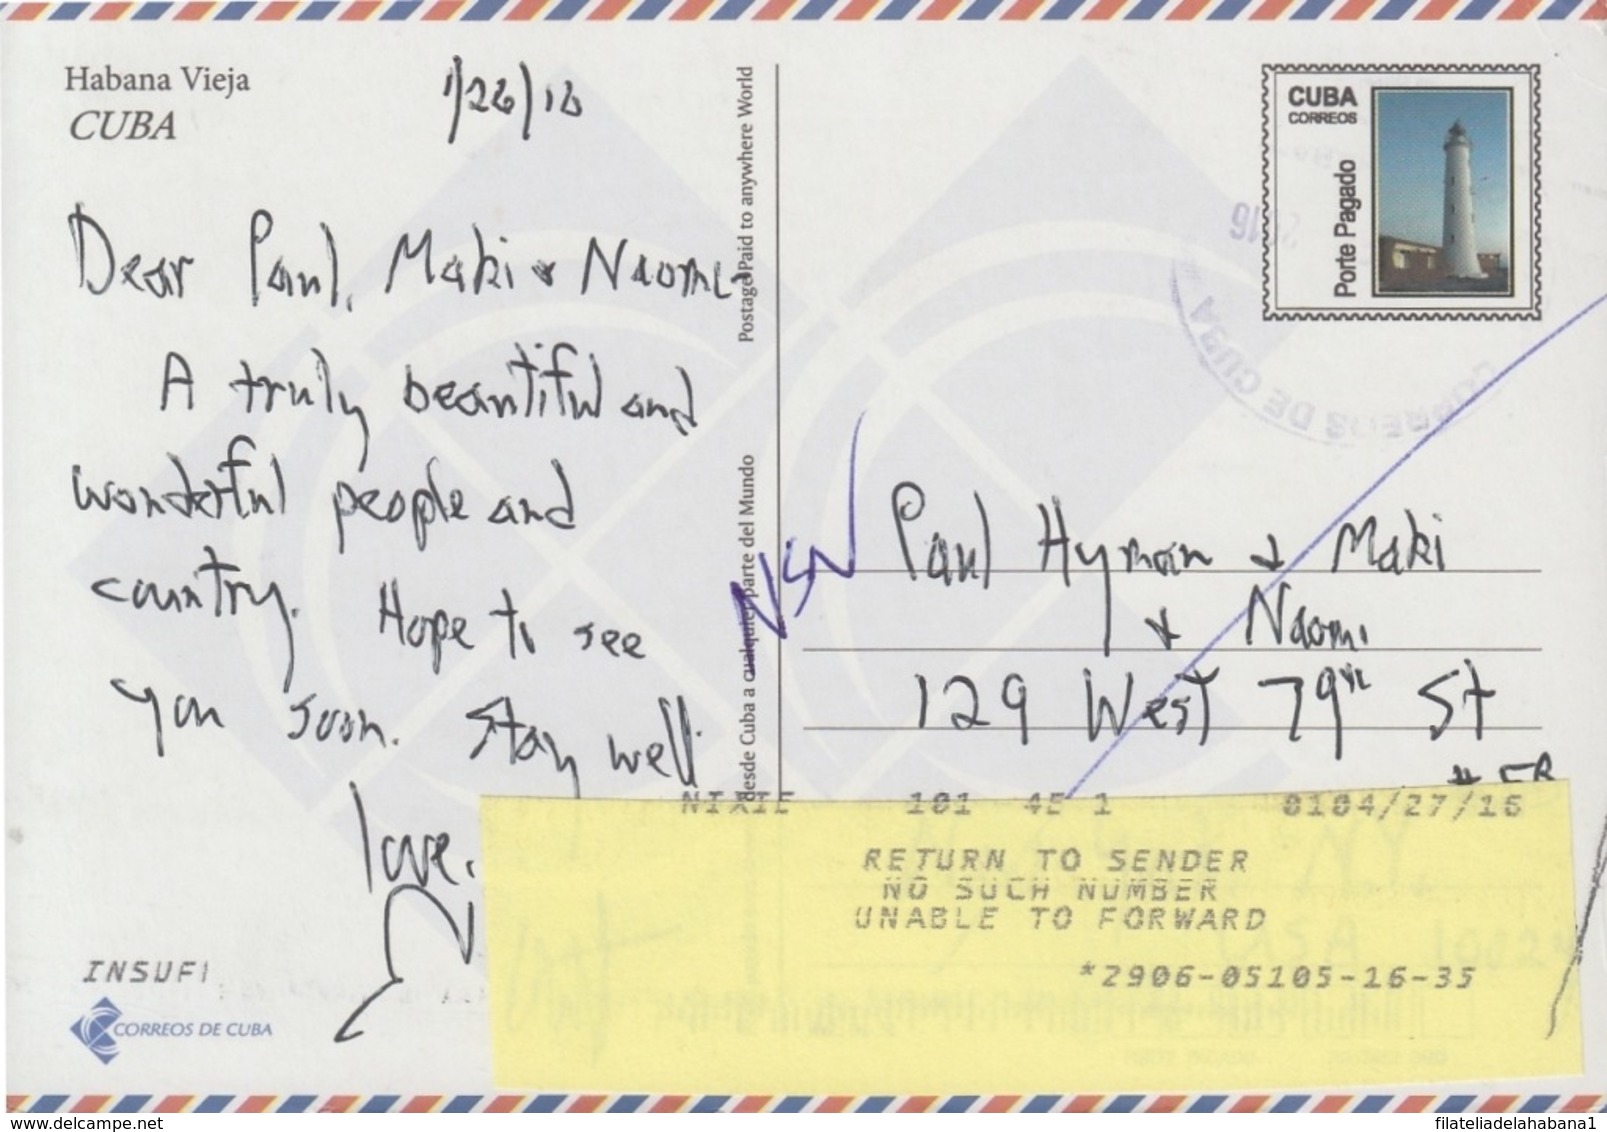 Habana Vieja
CUBA
1/26/16
Dear Paul, Maki & Naomi-
A truly beautiful and
wonderful people and
country. Hope to see
you soon. Stay well
love,
INSUFI
CORREOS DE CUBA
Postage Paid to anywhere World
desde Cuba a cualquier parte del Mundo
CUBA
CORREOS
Porte Pagado
2016
CORREOS DE CUBA
NSN
Paul Hyman & Maki
& Naomi
129 West 79th St
# 5B
NIXIE 101 4E 1 0104/27/16
RETURN TO SENDER
NO SUCH NUMBER
UNABLE TO FORWARD
*2906-05105-16-35
USA 10024
www.delcampe.net
filateliadelahabana1